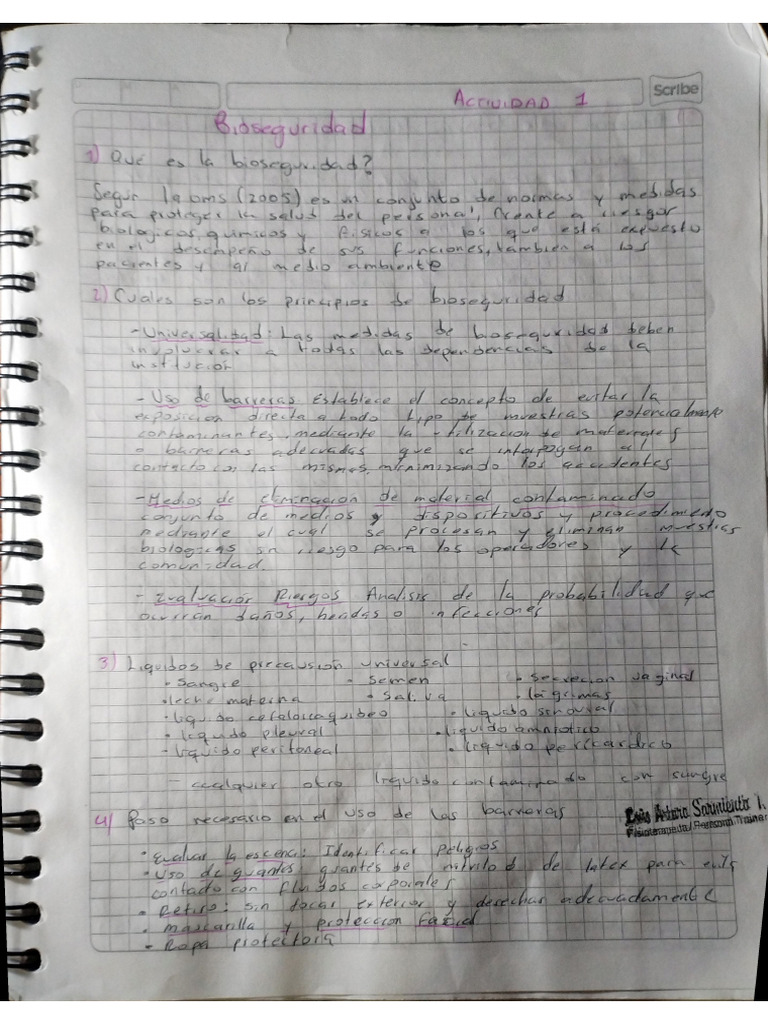 Scribe
Actividad 1
Bioseguridad
1) Qué es la bioseguridad?
Segun la oms (2005) es un conjunto de normas y medidas
para proteger la salud del personal, frente a riesgos
biologicos, quimicos y fisicos a los que está expuesto
en el desempeño de sus funciones, tambien a los
pacientes y al medio ambiente
2) Cuales son los principios de bioseguridad
- Universalidad: Las medidas de bioseguridad deben
involucrar a todas las dependencias de la
institucion
- Uso de barreras Establece el concepto de evitar la
exposicion directa a todo tipo de muestras potencialmente
contaminantes, mediante la utilizacion de materiales
o barreras adecuadas que se interpongan al
contacto con las mismas, minimizando los accidentes
- Medios de eliminacion de material contaminado
conjunto de medios y dispositivos y procedimiento
mediante el cual se procesan y eliminan muestras
biologicas sin riesgo para los operadores y la
comunidad.
- Evaluación Riesgos Analisis de la probabilidad que
ocurran daños, heridas o infecciones
3) Liquidos de precausión universal
• Sangre • Semen • Secrecion vaginal
• leche materna • Saliva • lágrimas
• liquido cefaloraquideo • liquido sinovial
• liquido pleural • liquido amniotico
• liquido peritoneal • liquido pericardico
- cualquier otro liquido contaminado con sangre
4) Paso necesario en el uso de las barreras
Luis Arturo Sarmiento T.
Fisioterapeuta/Personal Trainer
• Evaluar la escena: Identificar peligros
• Uso de guantes: guantes de nitrilo o de latex para
contacto con fluidos corporales
• Retiro: sin tocar exterior y desechar adecuadamente
• mascarilla y proteccion facial
• Ropa protectora